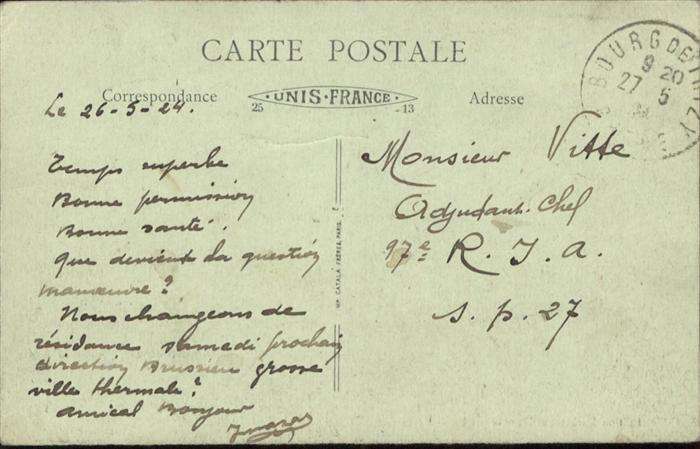 CARTE POSTALE
Correspondance
25 UNIS-FRANCE 13
Adresse
BOURG DE
9 20
27 5
Le 26-5-24.
Temps superbe
Bonne permission
Bonne santé.
Que devient la question
manœuvre?
Nous changeons de
résidence samedi prochain
direction grosse
ville thermale?
amical Bonjour
Monsieur Vitte
Adjudant-Chef
97e R. I. A.
S. p. 27
IMP. CATALA FRÈRES, PARIS